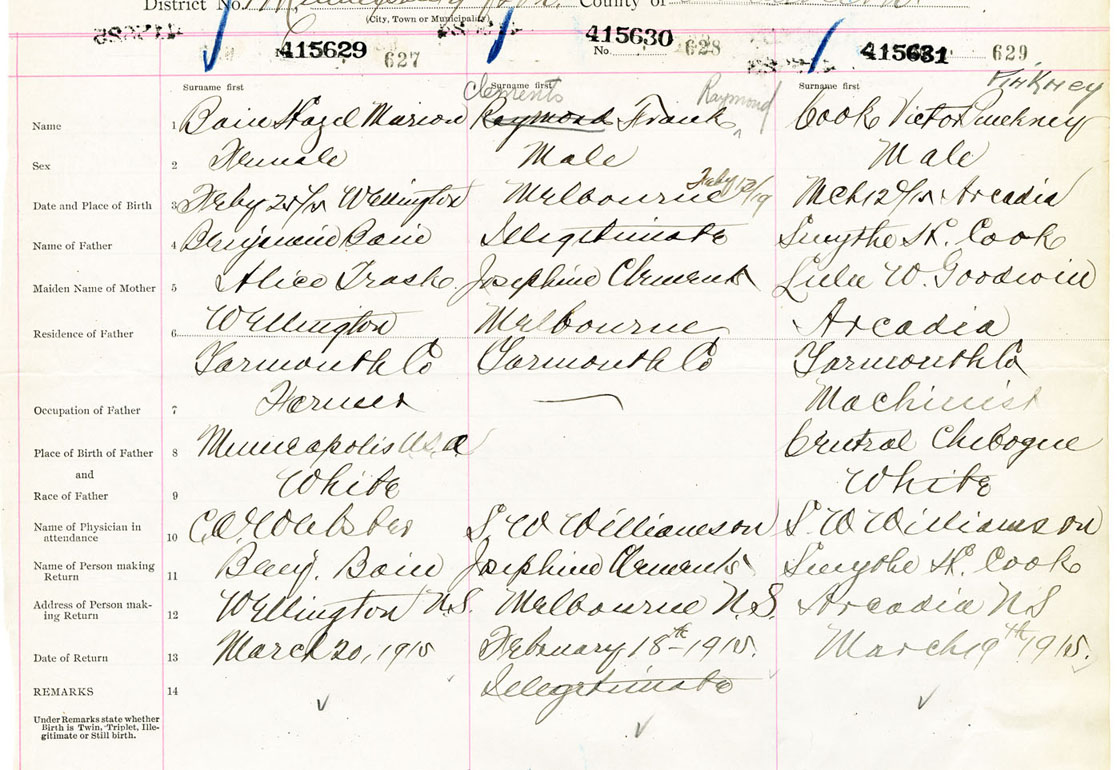 District No. County of
(City, Town or Municipality)
No. 415629 627 No. 415630 628 415631 629
Surname first Surname first Surname first
Clements Raymond Pinkney
Name 1 Bain Hazel Marion Raymond Frank Cook Victor Pinckney
Sex 2 Female Male Male
Date and Place of Birth 3 Feby Wellington Melbourne Feby Mch 12 Arcadia
Name of Father 4 Benjamin Bain Illegitimate Smythe H. Cook
Maiden Name of Mother 5 Alice Trask Josephine Clements Lulu W. Goodwin
Residence of Father 6 Wellington Melbourne Arcadia
Yarmouth Co Yarmouth Co Yarmouth Co
Occupation of Father 7 Farmer — Machinist
Place of Birth of Father 8 Minneapolis U.S.A Central Chebogue
and
Race of Father 9 White White
Name of Physician in attendance 10 C.O. Webster S. W Williamson S. W Williamson
Name of Person making Return 11 Benj. Bain Josephine Clements Smythe H. Cook
Address of Person making Return 12 Wellington N.S. Melbourne N.S. Arcadia N S
Date of Return 13 March 20, 1915 February 18th - 1915. March 19th 1915.
REMARKS 14 Illegitimate
Under Remarks state whether
Birth is Twin, Triplet, Ille-
gitimate or Still birth.